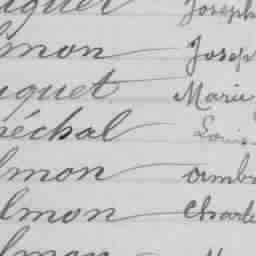 uguet Joseph
lmon Josep
uquet Marie
réchal Loui
lmon Ambr
lmon Charle
lmon